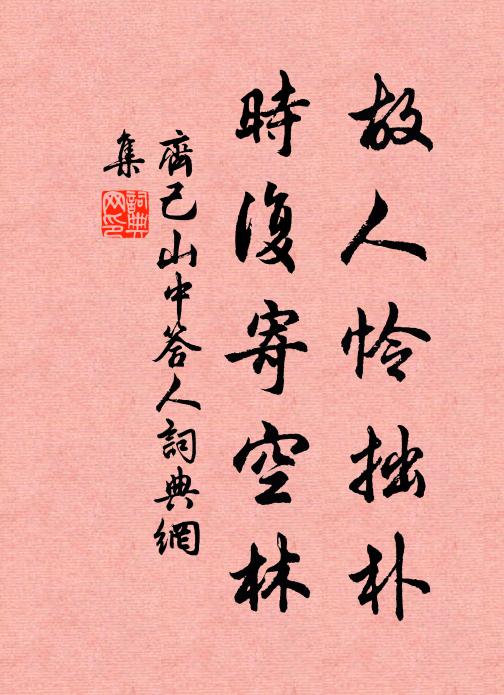 故人怜拙朴
時復寄空林
齊己山中答人詞典網
集
詞典
网印